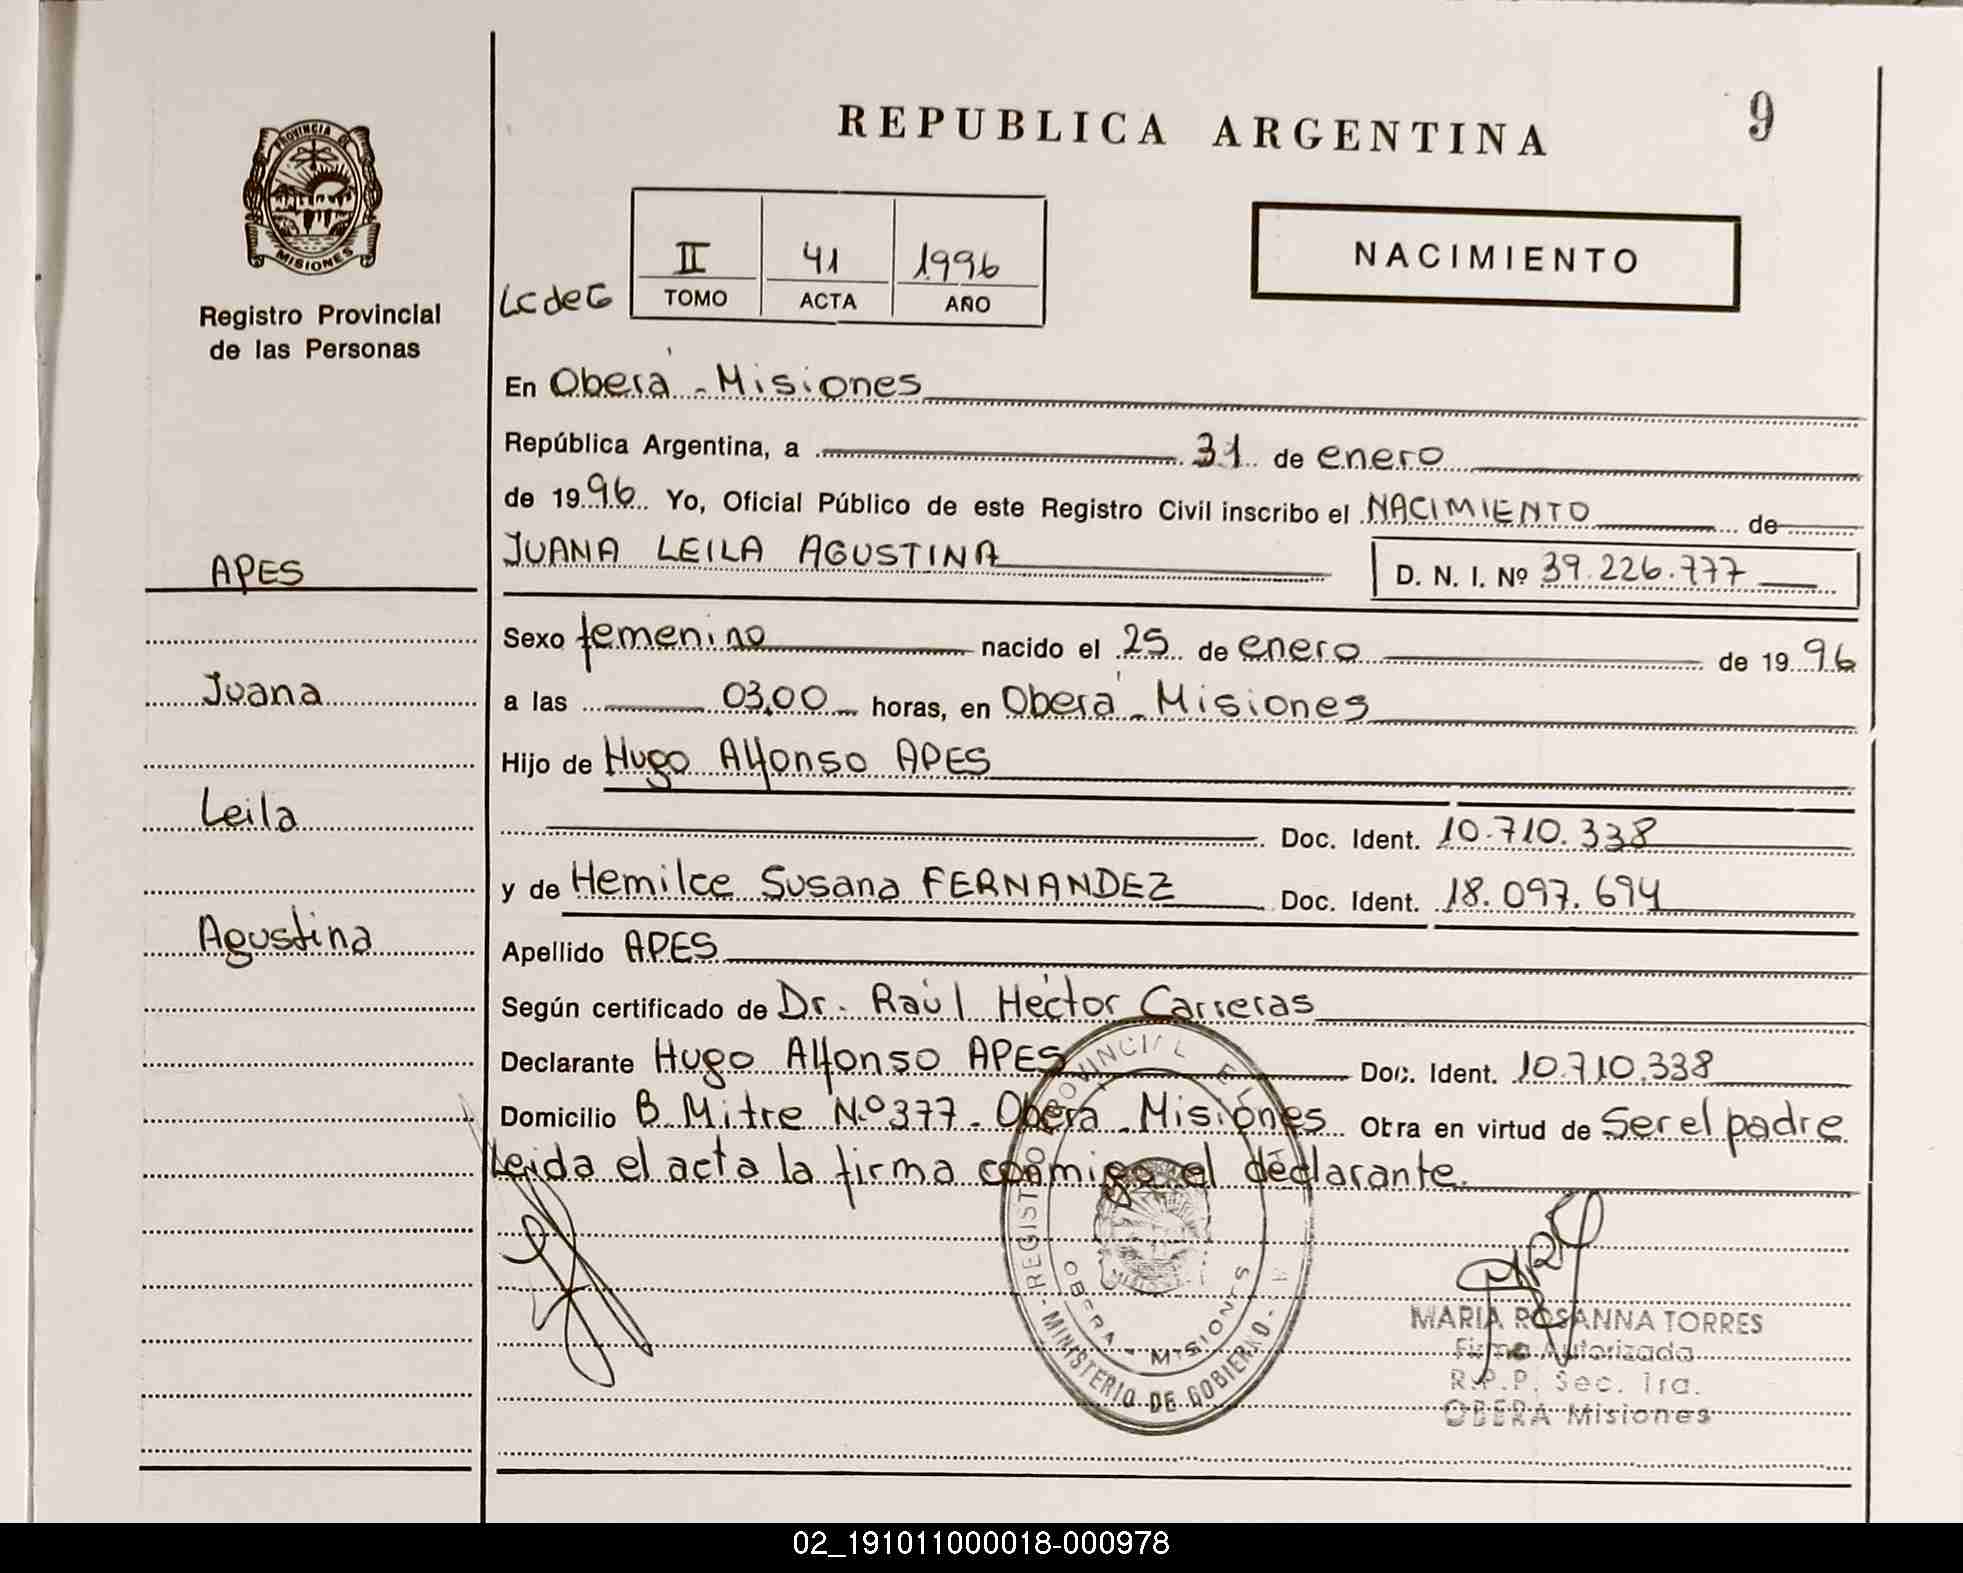 REPUBLICA ARGENTINA
9
PROVINCIA DE
MISIONES
Registro Provincial
de las Personas
LC de G
II
TOMO
41
ACTA
1996
AÑO
NACIMIENTO
En Oberá - Misiones
República Argentina, a 31 de enero
de 1996 Yo, Oficial Público de este Registro Civil inscribo el NACIMIENTO de
JUANA LEILA AGUSTINA
D. N. I. Nº 39.226.777
APES
Juana
Leila
Agustina
Sexo femenino nacido el 25 de enero de 1996
a las 03,00 horas, en Oberá - Misiones
Hijo de Hugo Alfonso APES
Doc. Ident. 10.710.338
y de Hemilce Susana FERNANDEZ Doc. Ident. 18.097.694
Apellido APES
Según certificado de Dr. Raúl Héctor Carreras
Declarante Hugo Alfonso APES Doc. Ident. 10.710.338
Domicilio B. Mitre Nº 377 - Oberá - Misiones Obra en virtud de Ser el padre
Leida el acta la firma conmigo el declarante.
REGISTRO PROVINCIAL
MINISTERIO DE GOBIERNO
OBERA - MISIONES
MARIA ROSANNA TORRES
Firma Autorizada
R.P.P. Sec. 1ra.
OBERA Misiones
02_191011000018-000978